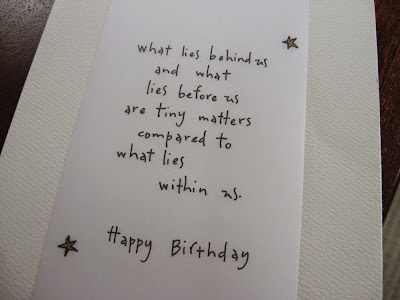 what lies behind us
and what
lies before us
are tiny matters
compared to
what lies
within us.
Happy Birthday